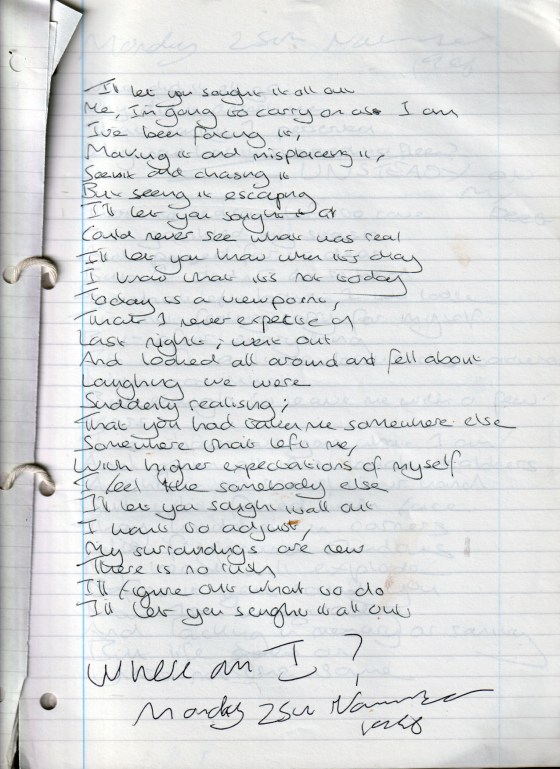 I'll let you sought it all out
Me, I'm going to carry on as I am
I've been facing it,
Making it and misplacing it,
Seein it and chasing it
But seeing it escaping
I'll let you sought it
Could never see what was real
I'll let you know when it's okay
I know that it's not today
Today is a viewpoint,
That I never expected
Last night; went out
And looked all around and fell about
Laughing we were
Suddenly realising;
That you had taken me somewhere else
Somewhere that left me,
With higher expectations of myself
I feel like somebody else
I'll let you sought it all out
I want to adjust,
My surroundings are new
There is no rush
I'll figure out what to do
I'll let you sought it all out
Where am I?
Monday 25th November